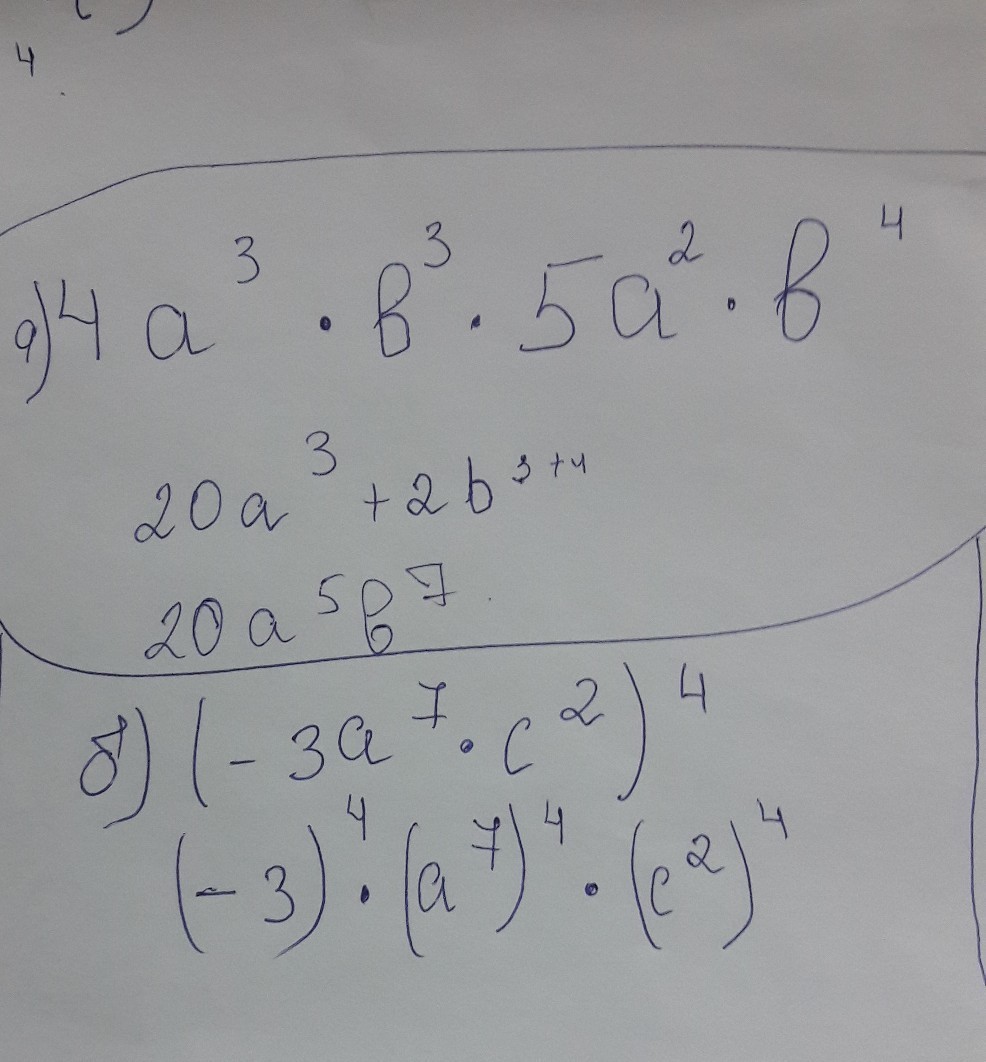 4
а) 4a³ · b³ · 5a² · b⁴
20a³ + 2b³⁺⁴
20a⁵b⁷
б) (-3a⁷ · c²)⁴
(-3)⁴ · (a⁷)⁴ · (c²)⁴